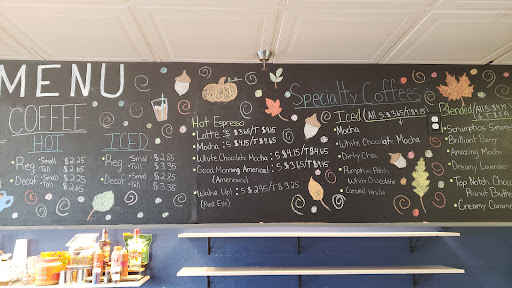 MENU
COFFEE
HOT
Reg -Small $2.25
-Tall $2.65
Decaf -Small $2.25
-Tall $2.65
ICED
Reg -Small $2.85
-Tall $3.35
Decaf -Small $2.85
-Tall $3.35
Specialty Coffees
Hot Espresso
Latte : S $3.65/T $4.15
Mocha : S $4.15/T $4.65
White Chocolate Mocha : S $4.15/T $4.65
Good Morning America! : S $3.65/T $4.15
(Americano)
Wake Up! : S $2.95/T $3.25
(Red Eye)
Iced (All S:
Mocha
White Chocolate Mocha
Dirty Chai
Pumpkin Patch
White Chocolate
Caramel Vanilla
Blended (All S:
Scrumptious
Brilliant Berry
Amazing Mocha
Creamy
Top Notch
Peanut
Creamy